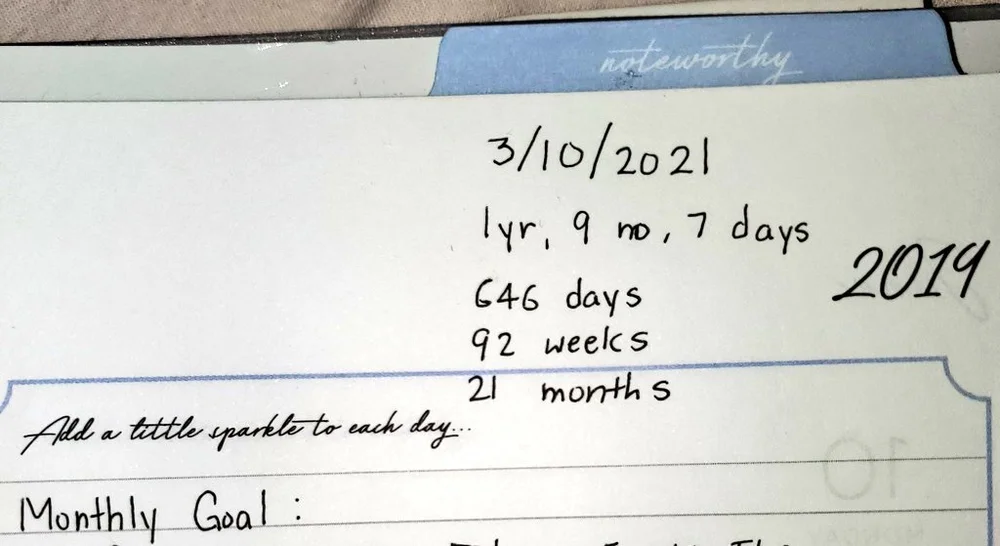 noteworthy
3/10/2021
1yr, 9 mo, 7 days
2019
646 days
92 weeks
21 months
Add a little sparkle to each day...
10
MONDAY
Monthly Goal :